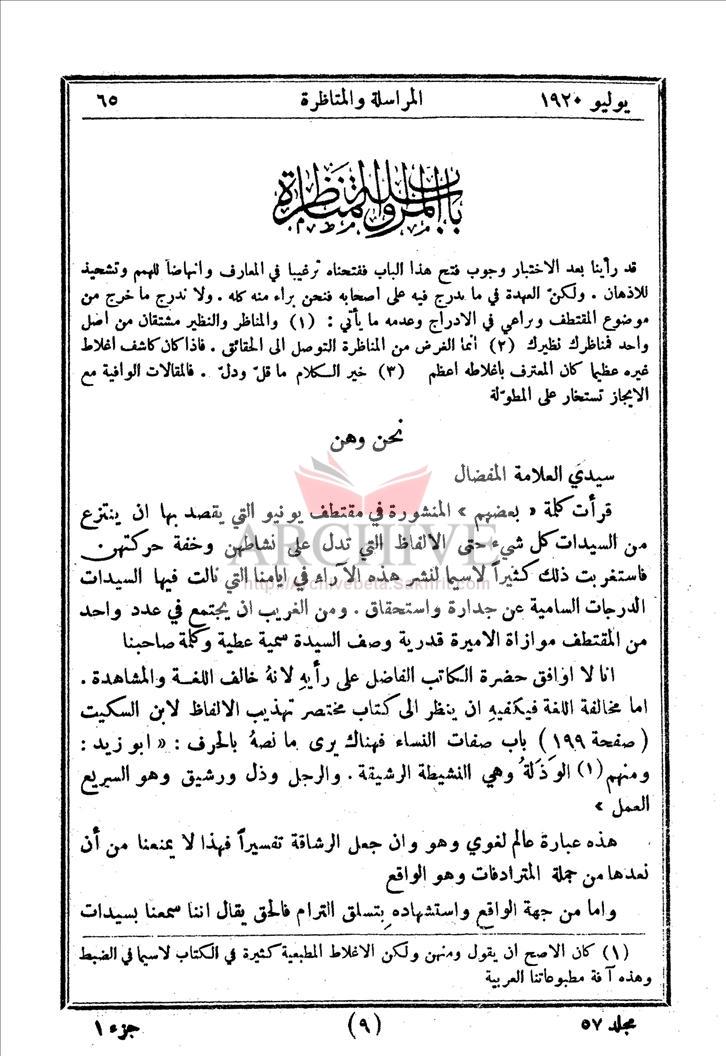 يوليو ١٩٢٠ المراسلة والمناظرة ٦٥
باب المراسلة والمناظرة
قد رأينا بعد الاختبار وجوب فتح هذا الباب ففتحناه ترغيبا في المعارف وانهاضاً للهمم وتشحيذ
للاذهان . ولكنّ العهدة في ما يدرج فيه على اصحابه فنحن براء منه كله . ولا ندرج ما خرج من
موضوع المقتطف ونراعي في الادراج وعدمه ما يأتي : (١) والمناظر والنظير مشتقان من اصل
واحد فمناظرك نظيرك (٢) انما الغرض من المناظرة التوصل الى الحقائق . فاذا كان كاشف اغلاط
غيره عظيما كان المعترف باغلاطه اعظم (٣) خير الكلام ما قلّ ودلّ . فالمقالات الوافية مع
الايجاز تستخار على المطوّلة
نحن وهن
سيدي العلامة المفضال
قرأت كلمة « بعضهم » المنشورة في مقتطف يونيو التي يقصد بها ان ينتزع
من السيدات كل شيء حتى الالفاظ التي تدل على نشاطهن وخفة حركتهن
فاستغربت ذلك كثيراً لاسيما لنشر هذه الآراء في ايامنا التي نالت فيها السيدات
الدرجات السامية عن جدارة واستحقاق . ومن الغريب ان يجتمع في عدد واحد
من المقتطف موازاة الاميرة قدرية وصف السيدة سمية عطية وكلمة صاحبنا
انا لا اوافق حضرة الكاتب الفاضل على رأيهِ لانهُ خالف اللغة والمشاهدة .
اما مخالفة اللغة فيكفيهِ ان ينظر الى كتاب مختصر تهذيب الالفاظ لابن السكيت
(صفحة ١٩٩) باب صفات النساء فهناك يرى ما نصهُ بالحرف : « ابو زيد :
ومنهم(١) الوَذَلةُ وهي النشيطة الرشيقة . والرجل وذل ورشيق وهو السريع
العمل »
هذه عبارة عالم لغوي وهو وان جعل الرشاقة تفسيراً فهذا لا يمنعنا من أن
نعدها من جملة المترادفات وهو الواقع
واما من جهة الواقع واستشهاده بتسلق الترام فالحق يقال اننا سمعنا بسيدات
(١) كان الاصح ان يقول ومنهن ولكن الاغلاط المطبعية كثيرة في الكتاب لاسيما في الضبط
وهذه آفة مطبوعاتنا العربية
مجلد ٥٧ (٩) جزء ١
ARCHIVE
http://Archivebeta.Sakhrit.com